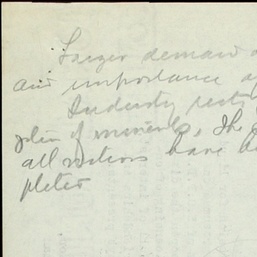 Larger demand
and importance
Industry rests
of minerals, The
all nations have
pletes